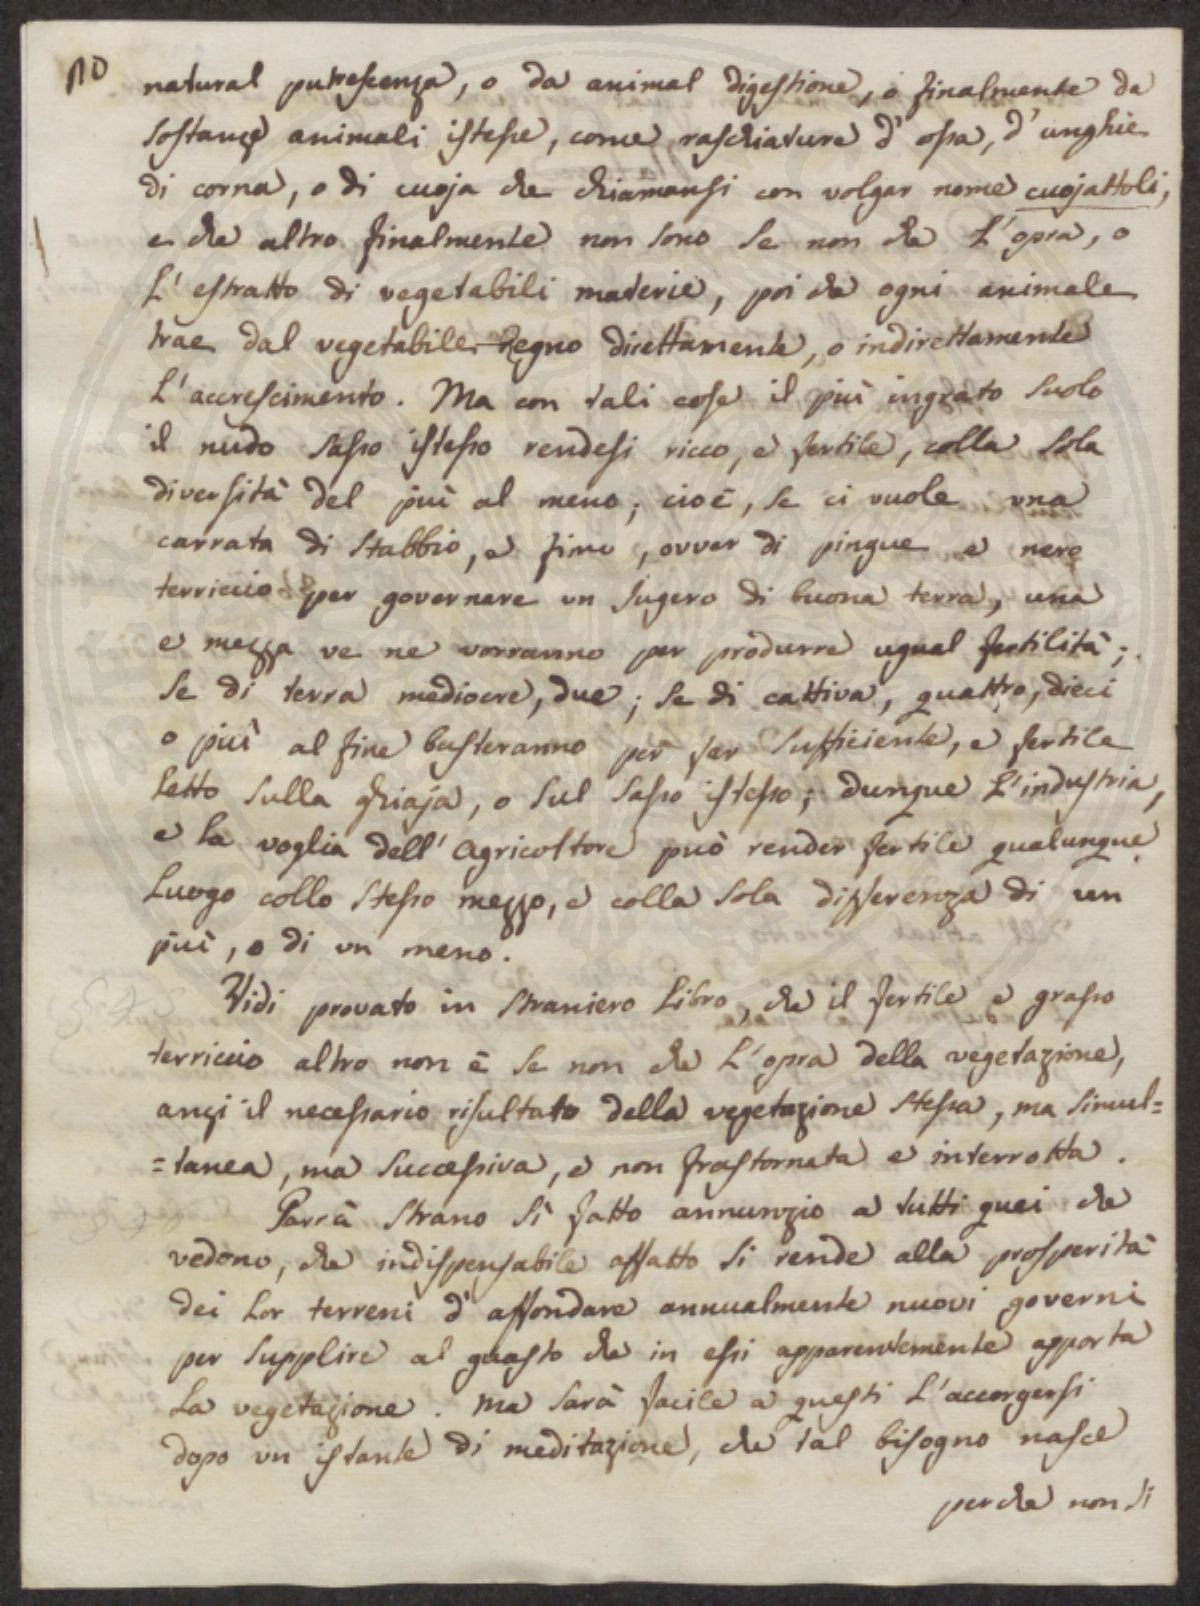 110
natural putrescenza, o da animal digestione, o finalmente da
sostanze animali istesse, come raschiature d'ossa, d'unghie
di corna, o di cuoja che chiamansi con volgar nome cuojattoli,
e che altro finalmente non sono se non che l'opra, o
l'estratto di vegetabili materie, poi che ogni animale
trae dal vegetabile Regno direttamente, o indirettamente
l'accrescimento. Ma con tali cose il più ingrato suolo
il nudo sasso istesso rendesi ricco, e fertile, colla sola
diversità del più al meno; cioè, se ci vuole una
carrata di stabbio, e fimo, ovver di pingue e nero
terriccio per governare un sugero di buona terra, una
e mezza ve ne vorranno per produrre ugual fertilità;
se di terra mediocre, due; se di cattiva, quattro, dieci
o più al fine basteranno per far sufficiente, e fertile
letto sulla ghiaja, o sul sasso istesso; dunque l'industria,
e la voglia dell'Agricoltore può render fertile qualunque
luogo collo stesso mezzo, e colla sola differenza di un
più, o di un meno.
Vidi provato in straniero libro, che il fertile e grasso
terriccio altro non è se non che l'opra della vegetazione,
anzi il necessario risultato della vegetazione stessa, ma simul=
=tanea, ma successiva, e non frastornata e interrotta.
Parrà strano sì fatto annunzio a tutti quei che
vedono, che indispensabile affatto si rende alla prosperità
dei lor terreni d'affondare annualmente nuovi governi
per supplire al guasto che in essi apparentemente apporta
la vegetazione. Ma sarà facile a questi l'accorgersi
dopo un istante di meditazione, che tal bisogno nasce
perché non si